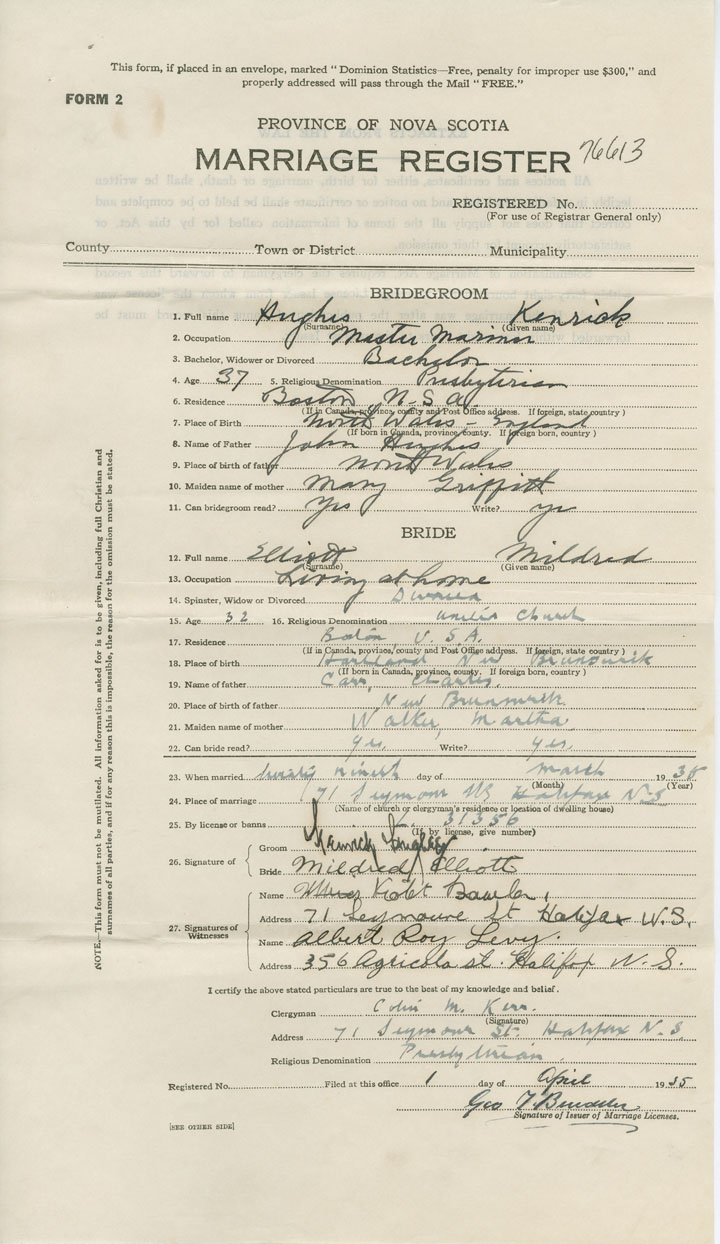 This form, if placed in an envelope, marked "Dominion Statistics—Free, penalty for improper use $300," and
properly addressed will pass through the Mail "FREE."
FORM 2
PROVINCE OF NOVA SCOTIA
MARRIAGE REGISTER 76613
REGISTERED No.
(For use of Registrar General only)
County Town or District Municipality
BRIDEGROOM
1. Full name Hughes Kenrick
(Surname) (Given name)
2. Occupation Master Mariner
3. Bachelor, Widower or Divorced Bachelor
4. Age 37 5. Religious Denomination Presbyterian
6. Residence Boston U.S.A.
(If in Canada, province, county and Post Office address. If foreign, state country)
7. Place of Birth North Wales - England
(If born in Canada, province, county. If foreign born, country)
8. Name of Father John Hughes
9. Place of birth of father North Wales
10. Maiden name of mother Mary Griffith
11. Can bridegroom read? Yes Write? yes
BRIDE
12. Full name Elliott Mildred
(Surname) (Given name)
13. Occupation Living at home
14. Spinster, Widow or Divorced Divorced
15. Age 32 16. Religious Denomination United Church
17. Residence Boston U.S.A.
(If in Canada, province, county and Post Office address. If foreign, state country)
18. Place of birth Hartland New Brunswick
(If born in Canada, province, county. If foreign born, country)
19. Name of father Carr, Charles.
20. Place of birth of father New Brunswick
21. Maiden name of mother Walker, Martha
22. Can bride read? Yes, Write? Yes.
23. When married twenty nineth day of March 1935
(Month) (Year)
24. Place of marriage 71 Seymour St Halifax N.S
(Name of church or clergyman's residence or location of dwelling house)
25. By license or banns L. 31356
(If by license, give number)
26. Signature of Groom Kenrick Hughes
Bride Mildred Elliott
27. Signatures of Witnesses Name Violet Bowler
Address 71 Seymoure st Halifax N.S.
Name Albert Roy Levy.
Address 356 Agricola st. Halifax N.S.
I certify the above stated particulars are true to the best of my knowledge and belief.
Clergyman Colin M. Kerr.
(Signature)
Address 71 Seymour St. Halifax N.S.
Religious Denomination Presbyterian
Registered No. Filed at this office 1 day of April 1935
Geo T.
Signature of Issuer of Marriage Licenses.
[SEE OTHER SIDE]
NOTE.—This form must not be mutilated. All information asked for is to be given, including full Christian and
surnames of all parties, and if for any reason this is impossible, the reason for the omission must be stated.